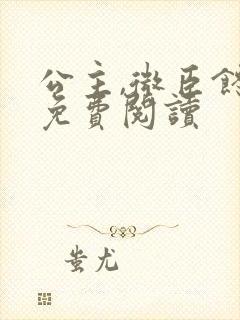 公主,微臣
免費閱讀
蚩尤